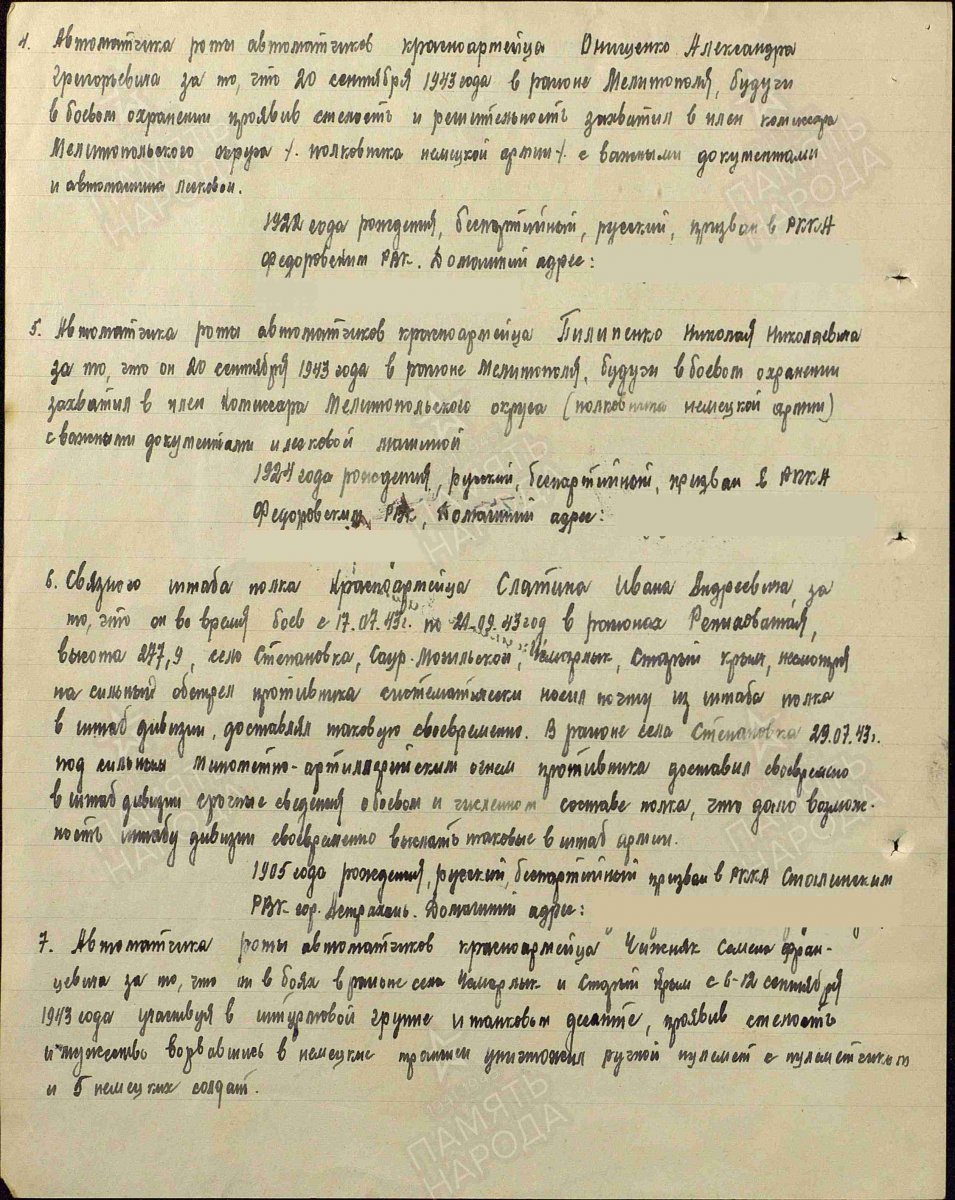 4. Автоматчика роты автоматчиков красноармейца Онищенко Александра
Григорьевича за то, что 20 сентября 1943 года в районе Мелитополя, будучи
в боевом охранении проявив смелость и решительность захватил в плен комиссара
Мелитопольского округа /. полковника немецкой армии /. с важными документами
и автомашина легковой.
1922 года рождения, беспартийный, русский, призван в РККА
Федоровским РВК. Домашний адрес:
5. Автоматчика роты автоматчиков красноармейца Пилипенко Николая Николаевича
за то, что он 20 сентября 1943 года в районе Мелитополя, будучи в боевом охранении
захватил в плен Комиссара Мелитопольского округа (полковника немецкой армии)
с важными документами и легковой машиной
года рождения, русский, беспартийный, призван в РККА
Федоровским РВК, Домашний адрес:
6. Связного штаба полка Красноармейца Слатина Ивана Андреевича, за
то, что он во время боев с 17.07.43г. по 21.09.43 год в районах Репиховатая,
высота 277,9, село Степановка, Саур-Могильской, Чемарлык, Старый крым, несмотря
на сильный обстрел противника систематически носил почту из штаба полка
в штаб дивизии, доставлял таковую своевременно. В районе села Степановка 29.07.43г.
под сильным минометно-артиллерийским огнем противника доставил своевремено
в штаб дивизии срочные сведения о боевом и численном составе полка, что дало возмож-
ность штабу дивизии своевременно выслать таковые в штаб армии.
1905 года рождения, русский, беспартийный призван в РККА Сталинским
РВК гор. Астрахань. Домашний адрес:
7. Автоматчика роты автоматчиков красноармейца "Чижняк Семена "Фран-"
цевича за то, что он в боях в районе села Чемарлык и Старый Крым с 6-12 сентября
1943 года участвуя в штурмовой группе и танковом десанте, проявив смелость
и мужество ворвавшись в немецкие траншеи уничтожил ручной пулемет с пулеметчиком
и 5 немецких солдат.
ПАМЯТЬ
НАРОДА